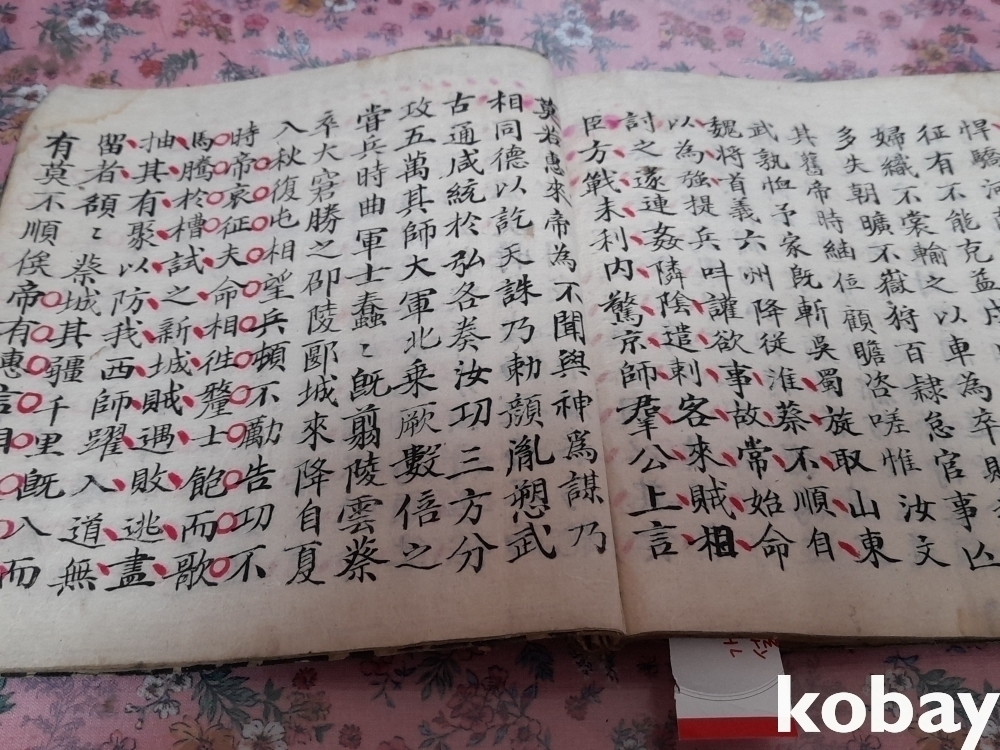 悍驕河
征有不能克益戍
婦織不裳輸之以車為卒賜
多失朝曠不嶽狩百隷怠官事亡
其舊帝時紬位顧瞻咨嗟惟汝文
武孰恤予家既斬吳蜀旋取山東
魏將首義六州降從淮蔡不順自
以為強提兵叫讙欲事故常始命
討之遂連姦隣陰遣刺客來賊相
臣方戰未利內驚京師羣公上言
莫若惠來帝為不聞與神爲謀乃
相同德以訖天誅乃勅顔胤愬武
古通咸統於弘各奏汝功三方分
攻五萬其師大軍北乘厥數倍之
甞兵時曲軍士蠢〻既翦陵雲蔡
卒大窘勝之邵陵郾城來降自夏
入秋復屯相望兵頓不勵告功不
時帝哀征夫命相徃釐士飽而歌
馬騰於槽試之新城賊遇敗逃盡
抽其有聚以防我西師躍入道無
留者頟〻蔡城其疆千里既入而
有莫不順俟帝有惠言相
kobay